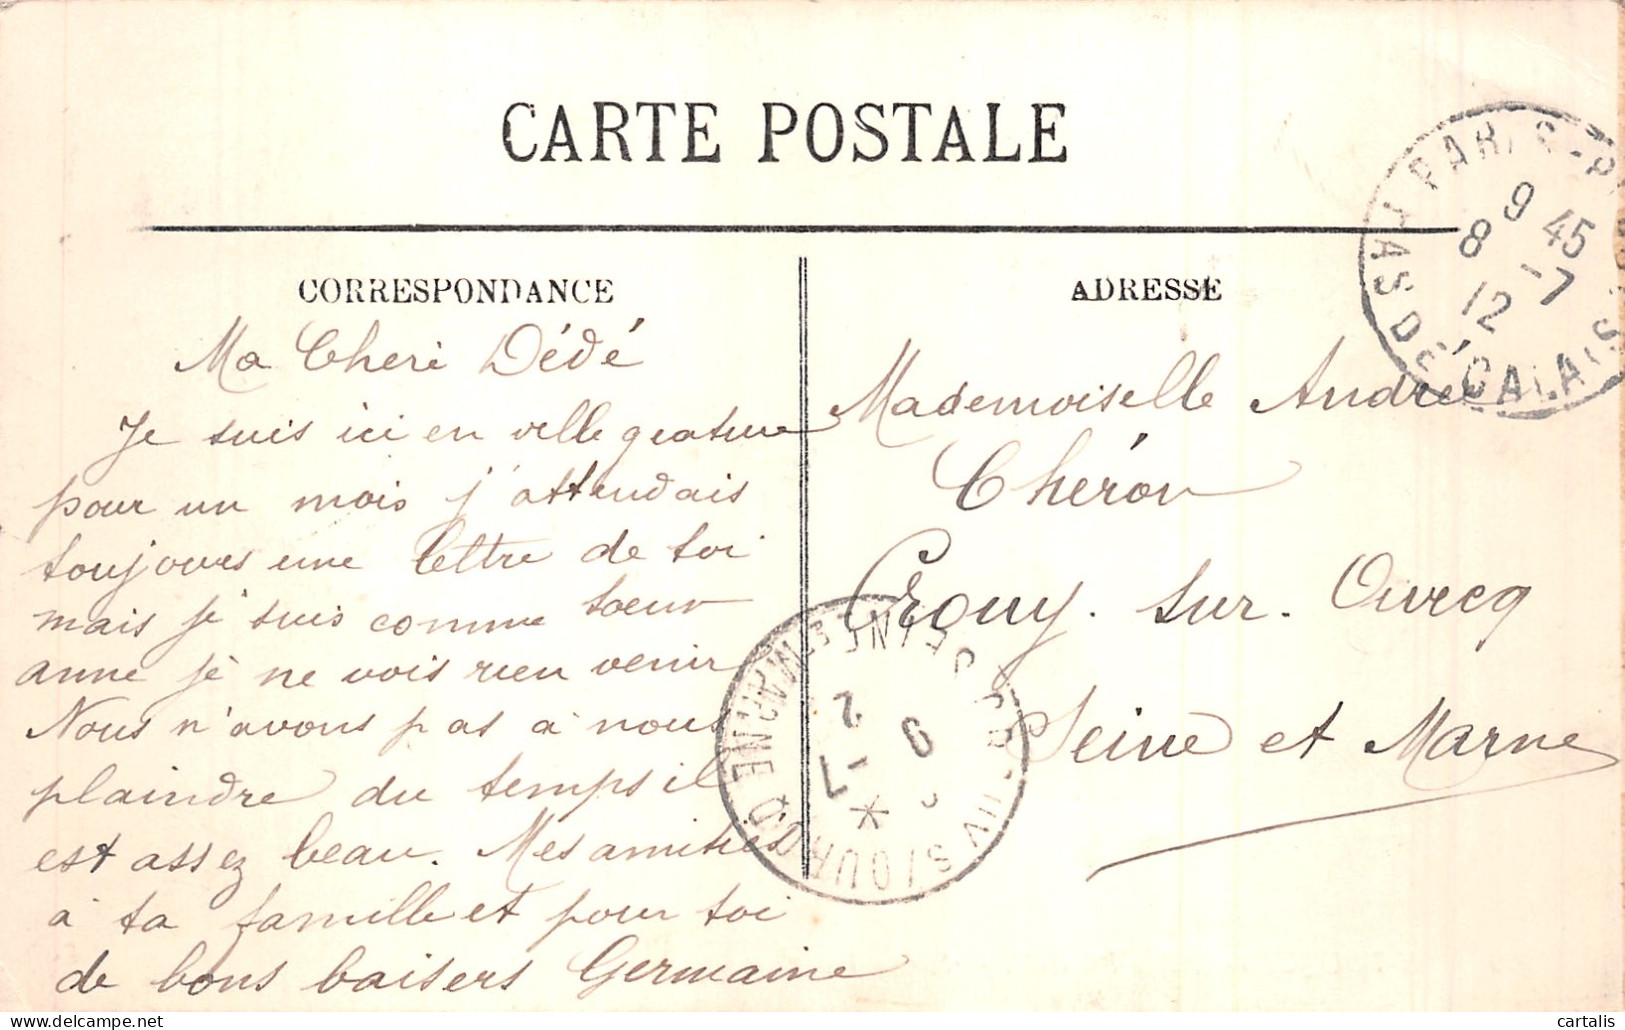 CARTE POSTALE
CORRESPONDANCE
Ma Cheri Dédé
Je suis ici en villegeature
pour un mois j'attendais
toujours une lettre de toi
mais je suis comme soeur
anne je ne vois rien venir
Nous n'avons pas a nous
plaindre du temps il
est assez beau. Mes amitiés
à ta famille et pour toi
de bons baisers Germaine
ADRESSE
Mademoiselle Andrée
Chéron
Crouy. sur. Ourcq
Seine et Marne
PARIS-P
PAS DE CALAIS
9 45
8 -7
12
CROUY S/OURCQ
SEINE ET MARNE
9 -7
cartalis